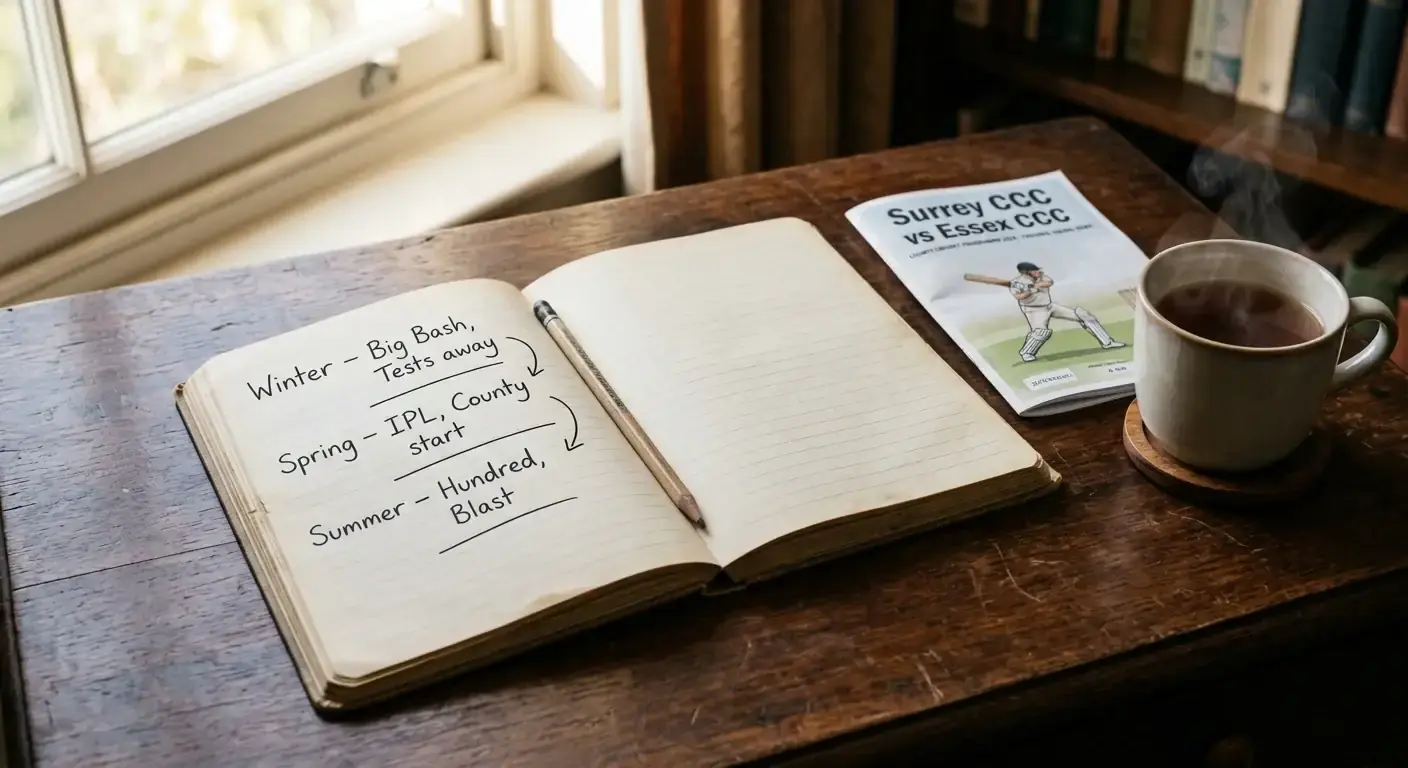 Winter – Big Bash,
Tests away
Spring – IPL, County
start
Summer – Hundred,
Blast
Surrey CCC
vs Essex CCC